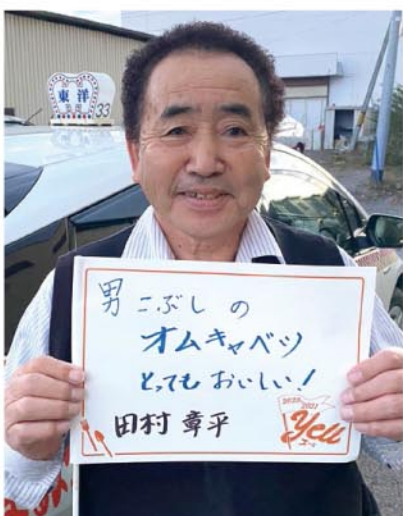 東洋
33
男こぶしの
オムキャベツ
とってもおいしい!
田村章平
Yell
エール